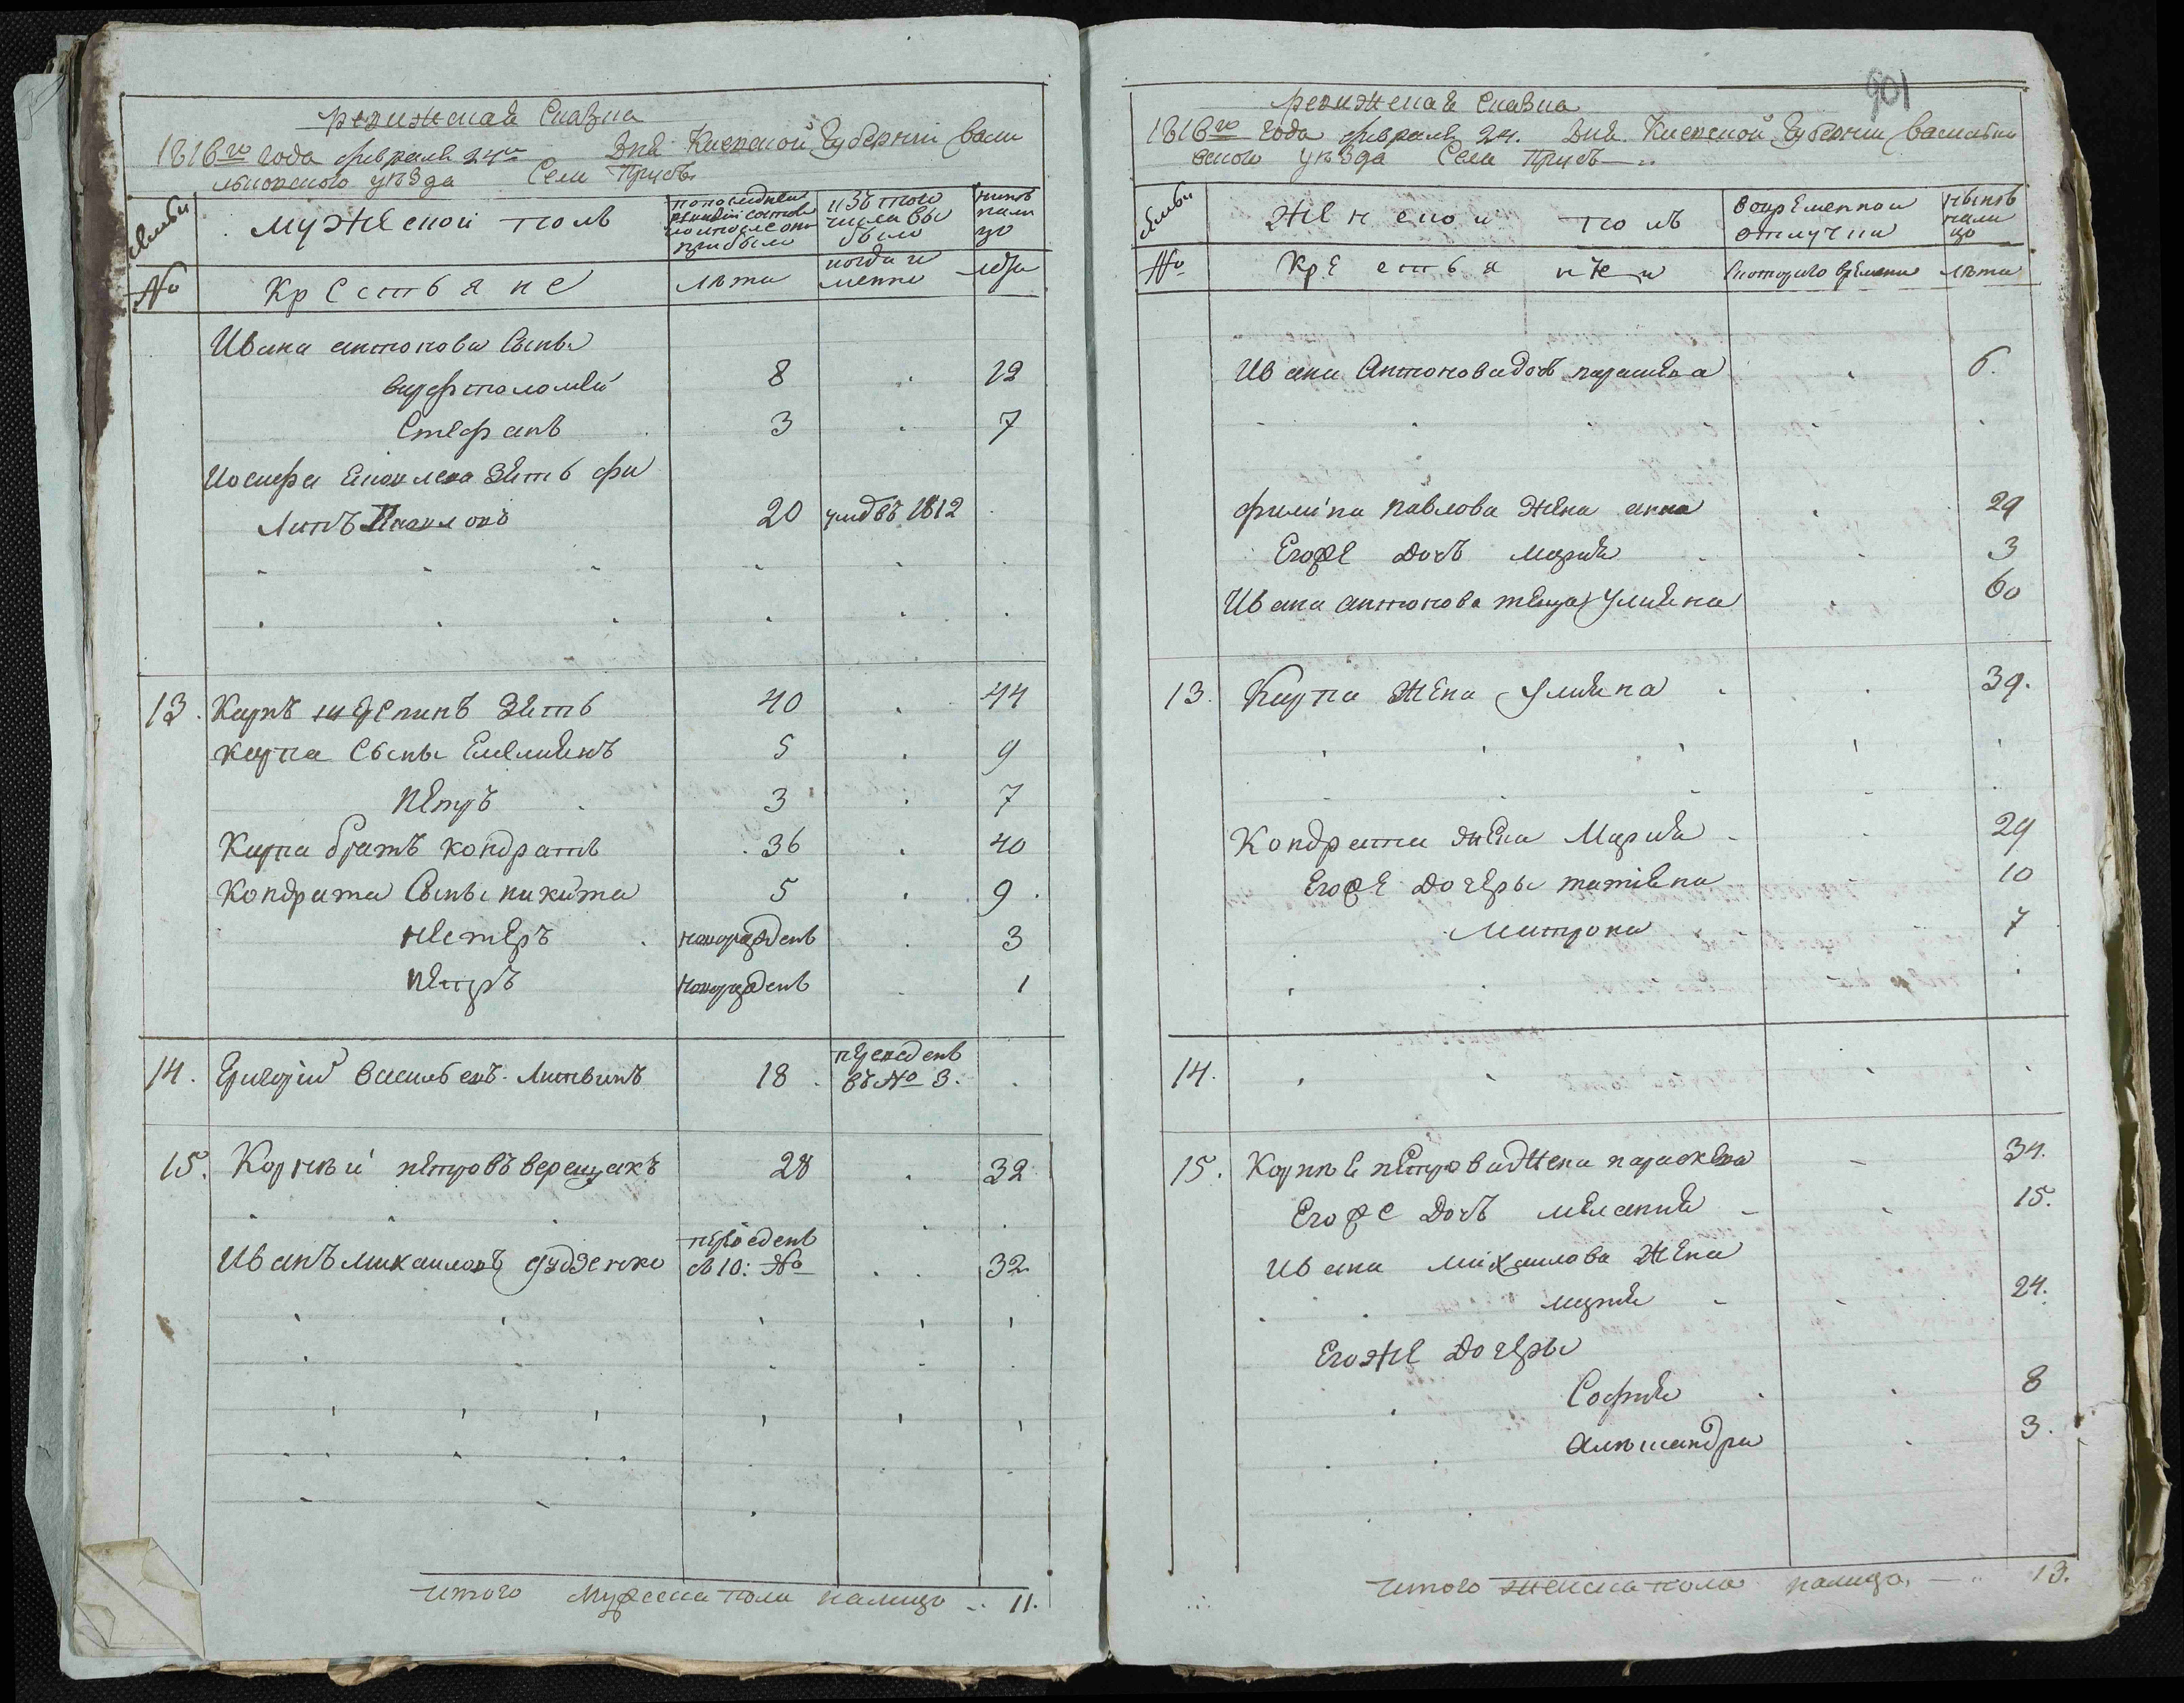 ревижская Сказка
1816го года февраля 24го Дня Киевской Губернии Васи
льковского уезда Села Трисъ
Семьи
мужеской полъ
по последней ревизии состояло и после оной прибыло
изъ того числа выбыло
ныне на лицо
№
Крестьяне
лета
когда именно
лета
Ивана антонова Сыны
варфтоломей 8 12
Стефанъ 3 7
Иосифа Зять фи
липъ Павловъ 20 умъ въ 1812
13. Карпъ Зять 40 44
карпа Сыны Емелиянъ 5 9
Петръ 3 7
Карпа братъ кондратъ 36 40
Кондрата Сыны никита 5 9
нестеръ новорожденъ 3
петръ новорожденъ 1
14. Григорий васильевъ Литвинъ 18 переведенъ въ № 3.
15. Корней петровъ верещакъ 28 32
Иванъ михаиловъ дудзенко переведенъ съ 10: № 32
итого Мужеска пола налицо 11.
901
ревижская Сказка
1816го года февраля 24. Дня Киевской Губернии Василько
вского уезда Села Трисъ
Семьи
Женской полъ
во временной отлучки
ныне на лицо
№
Крестьянки
с которого времени
лета
Ивана Антонова дочь парасиева 6.
филипа павлова жена анна 29
Егоже дочъ мария 3
Ивана антонова теща Улияна 60
13. Карпа жена Улияна 39.
Кондрата жена Мария 29
Егоже дочеры татиена 10
Матрона 7
14.
15. Корнея петрова жена параскева 34.
Егоже дочъ мелания 15.
Ивана михаилова жена
мария 24.
Егоже дочеры
София 8
Александра 3.
итого женска пола налицо 13.